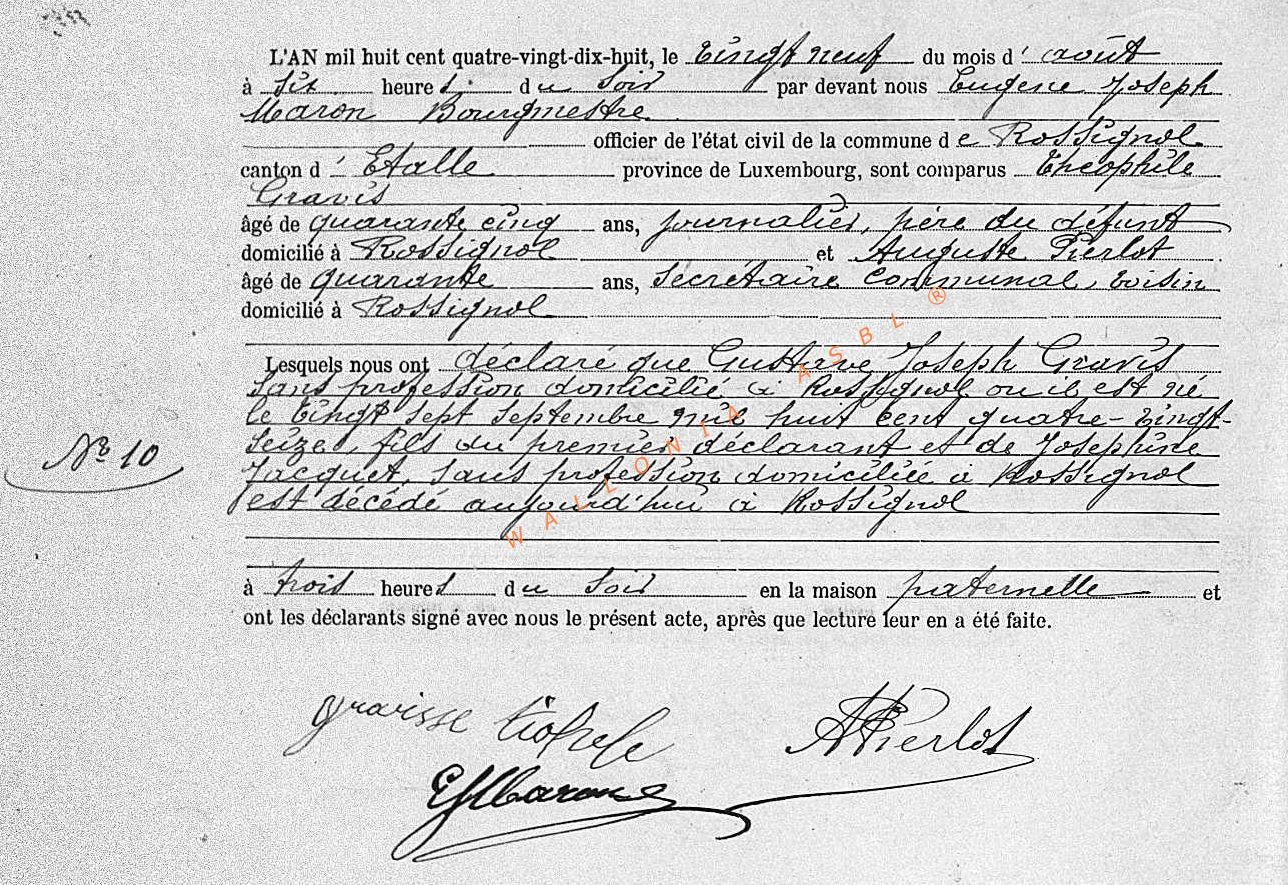 L'AN mil huit cent quatre-vingt-dix-huit, le vingt neuf du mois d' août
à six heures du soir par devant nous Eugène Joseph
Maron Bourgmestre
officier de l'état civil de la commune de Rossignol
canton d' Etalle province de Luxembourg, sont comparus Théophile
Gravis
âgé de quarante cinq ans, journalier, père du défunt
domicilié à Rossignol et Auguste Pierlot
âgé de quarante ans, secrétaire communal, voisin
domicilié à Rossignol
Lesquels nous ont déclaré que Gustave Joseph Gravis
sans profession domicilié à Rossignol ou il est né
le vingt sept septembre mil huit cent quatre-vingt-
seize, fils du premier déclarant et de Joséphine
Jacquet, sans profession domiciliée à Rossignol
est décédé aujourd'hui à Rossignol
N° 10
à trois heures du soir en la maison paternelle et
ont les déclarants signé avec nous le présent acte, après que lecture leur en a été faite.
gravisse tiofele
APierlot
EJMaron
WALLONIA ASBL ®